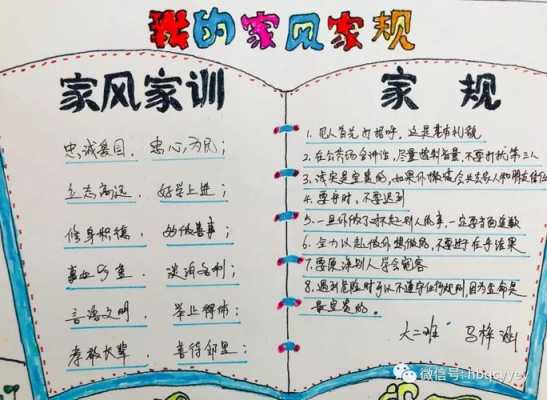 我的家风家规
家风家训
忠诚爱国，忠心为民；
立志高远，好学上进；
修身积德，多做善事；
事业为重，淡泊名利；
言语文明，举止得体；
孝敬长辈，善待邻里；
家规
1. 见人首先打招呼，这是基本礼貌
2. 在公共场合讲话，尽量控制音量，不要打扰第三人
3. 诚实是宝贵的，如果你撒谎会失去家人和朋友信任
4. 要守时，不要迟到
5. 一旦你做了对不起别人的事，一定要当面道歉
6. 全力以赴做你想做的，不要过于在乎结果
7. 要原谅别人学会宽容
8. 遇到危险时可以不遵守任何规则，因为生命是
最宝贵的。
大二班 马梓涵
微信号: hbqcyyey